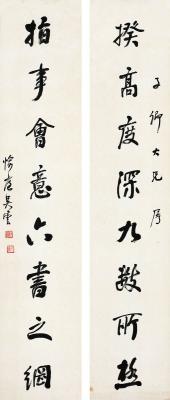 揆高度深九數所極
子卿大兄屬
指事會意六書之綱
愉庭吳雲